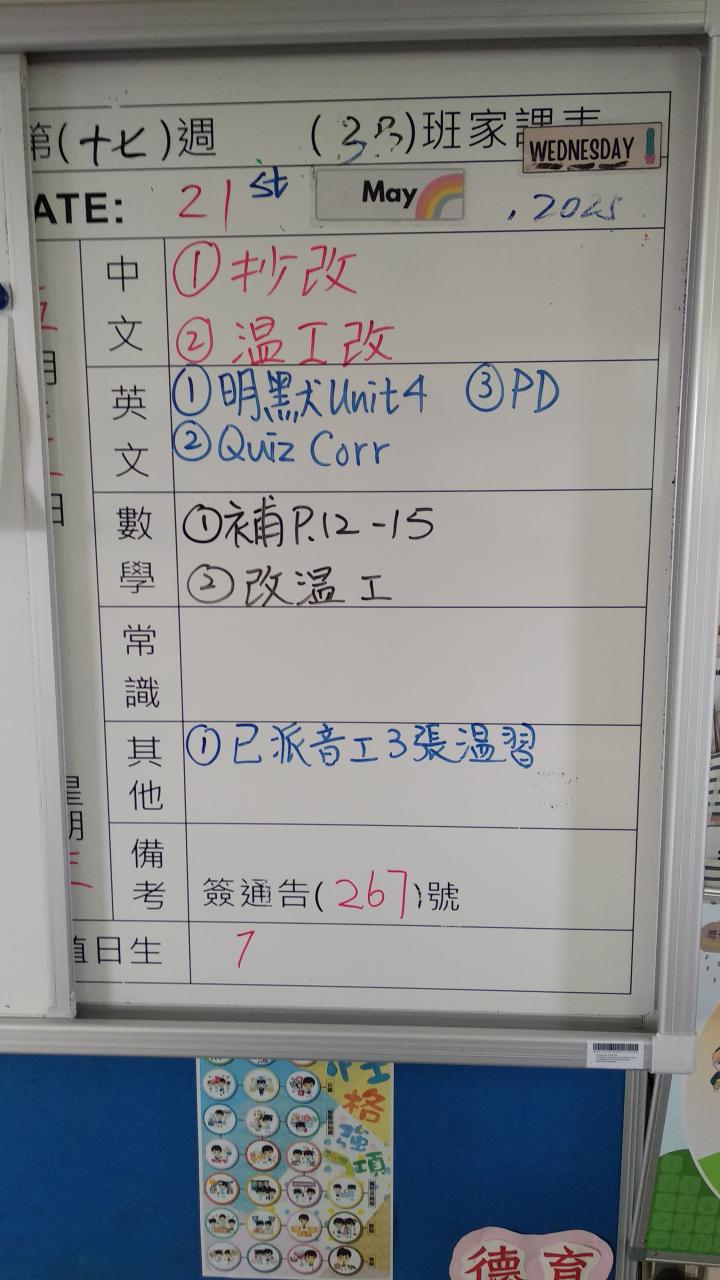 第(十七)週 (3B)班家課表
WEDNESDAY
ATE: 21st May , 2025
中文 ①抄改
②温工改
英文 ①明默Unit4 ③PD
②Quiz Corr
數學 ①補P.12-15
②改温工
常識
其他 ①已派音工3張温習
備考 簽通告(267)號
值日生 7
星期三
性格強項
德育